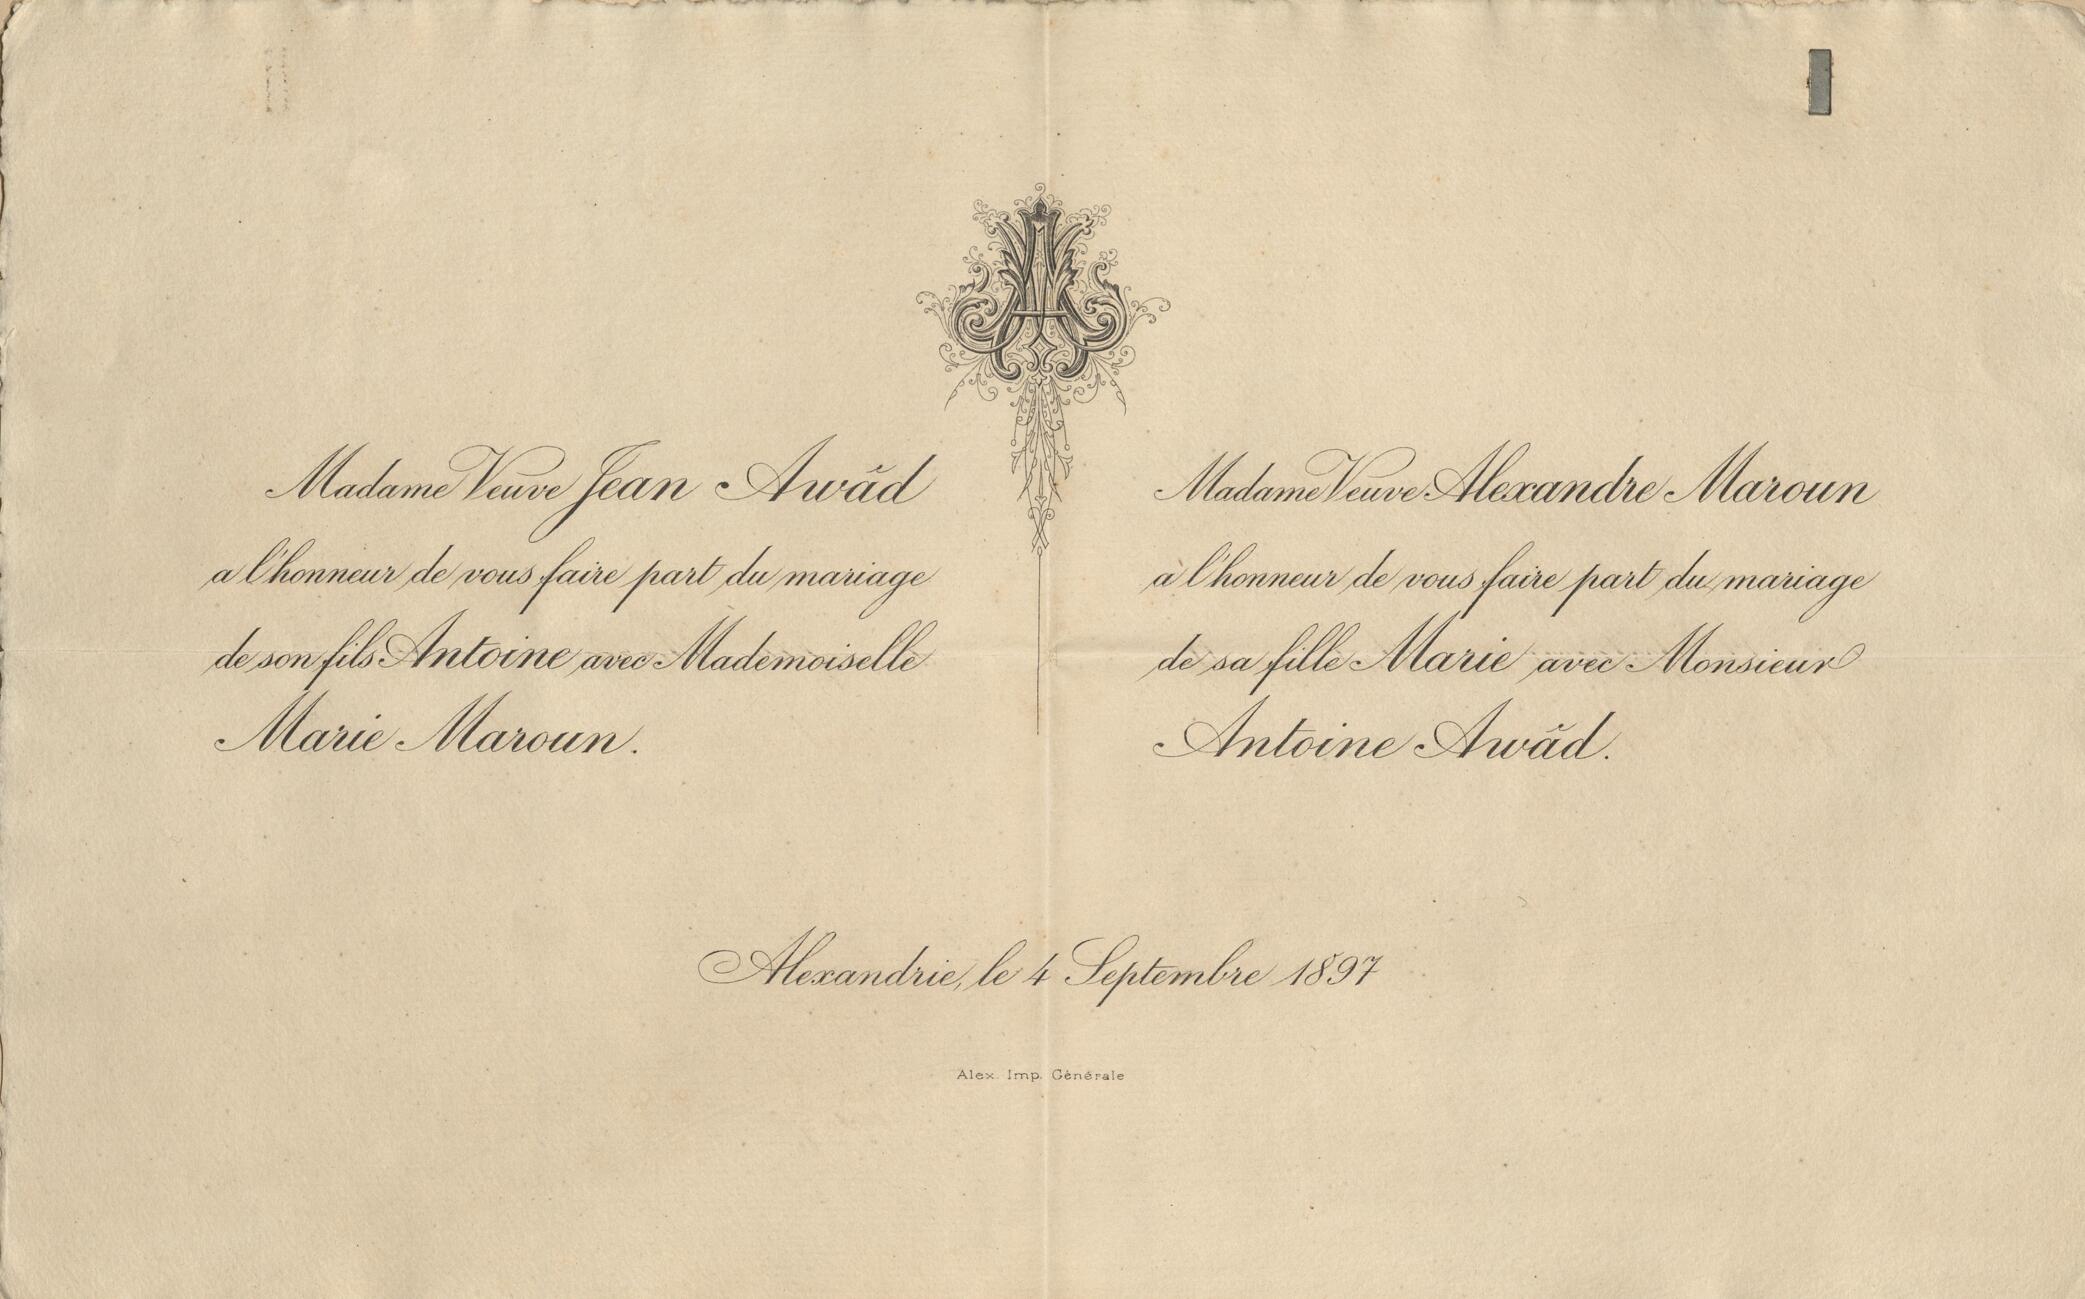 Madame Veuve Jean Awad
a l'honneur de vous faire part du mariage
de son fils Antoine avec Mademoiselle
Marie Maroun.
Madame Veuve Alexandre Maroun
a l'honneur de vous faire part du mariage
de sa fille Marie avec Monsieur
Antoine Awad.
Alexandrie, le 4 Septembre 1897
Alex. Imp. Générale